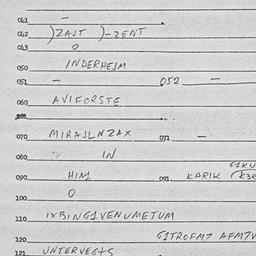 041 —
042 )ZAST )-ZENT
043 O
050 INDERHEIM
051 — 052 —
060 AVIFORSTE
070 MIRAJLNZAX 071 —
080 IN
090 HIM 091 KARIK
100 O
110 IXBING1VENUMETUM
120 G1TROFM7 AFM7V
121 UNTERVEGTS